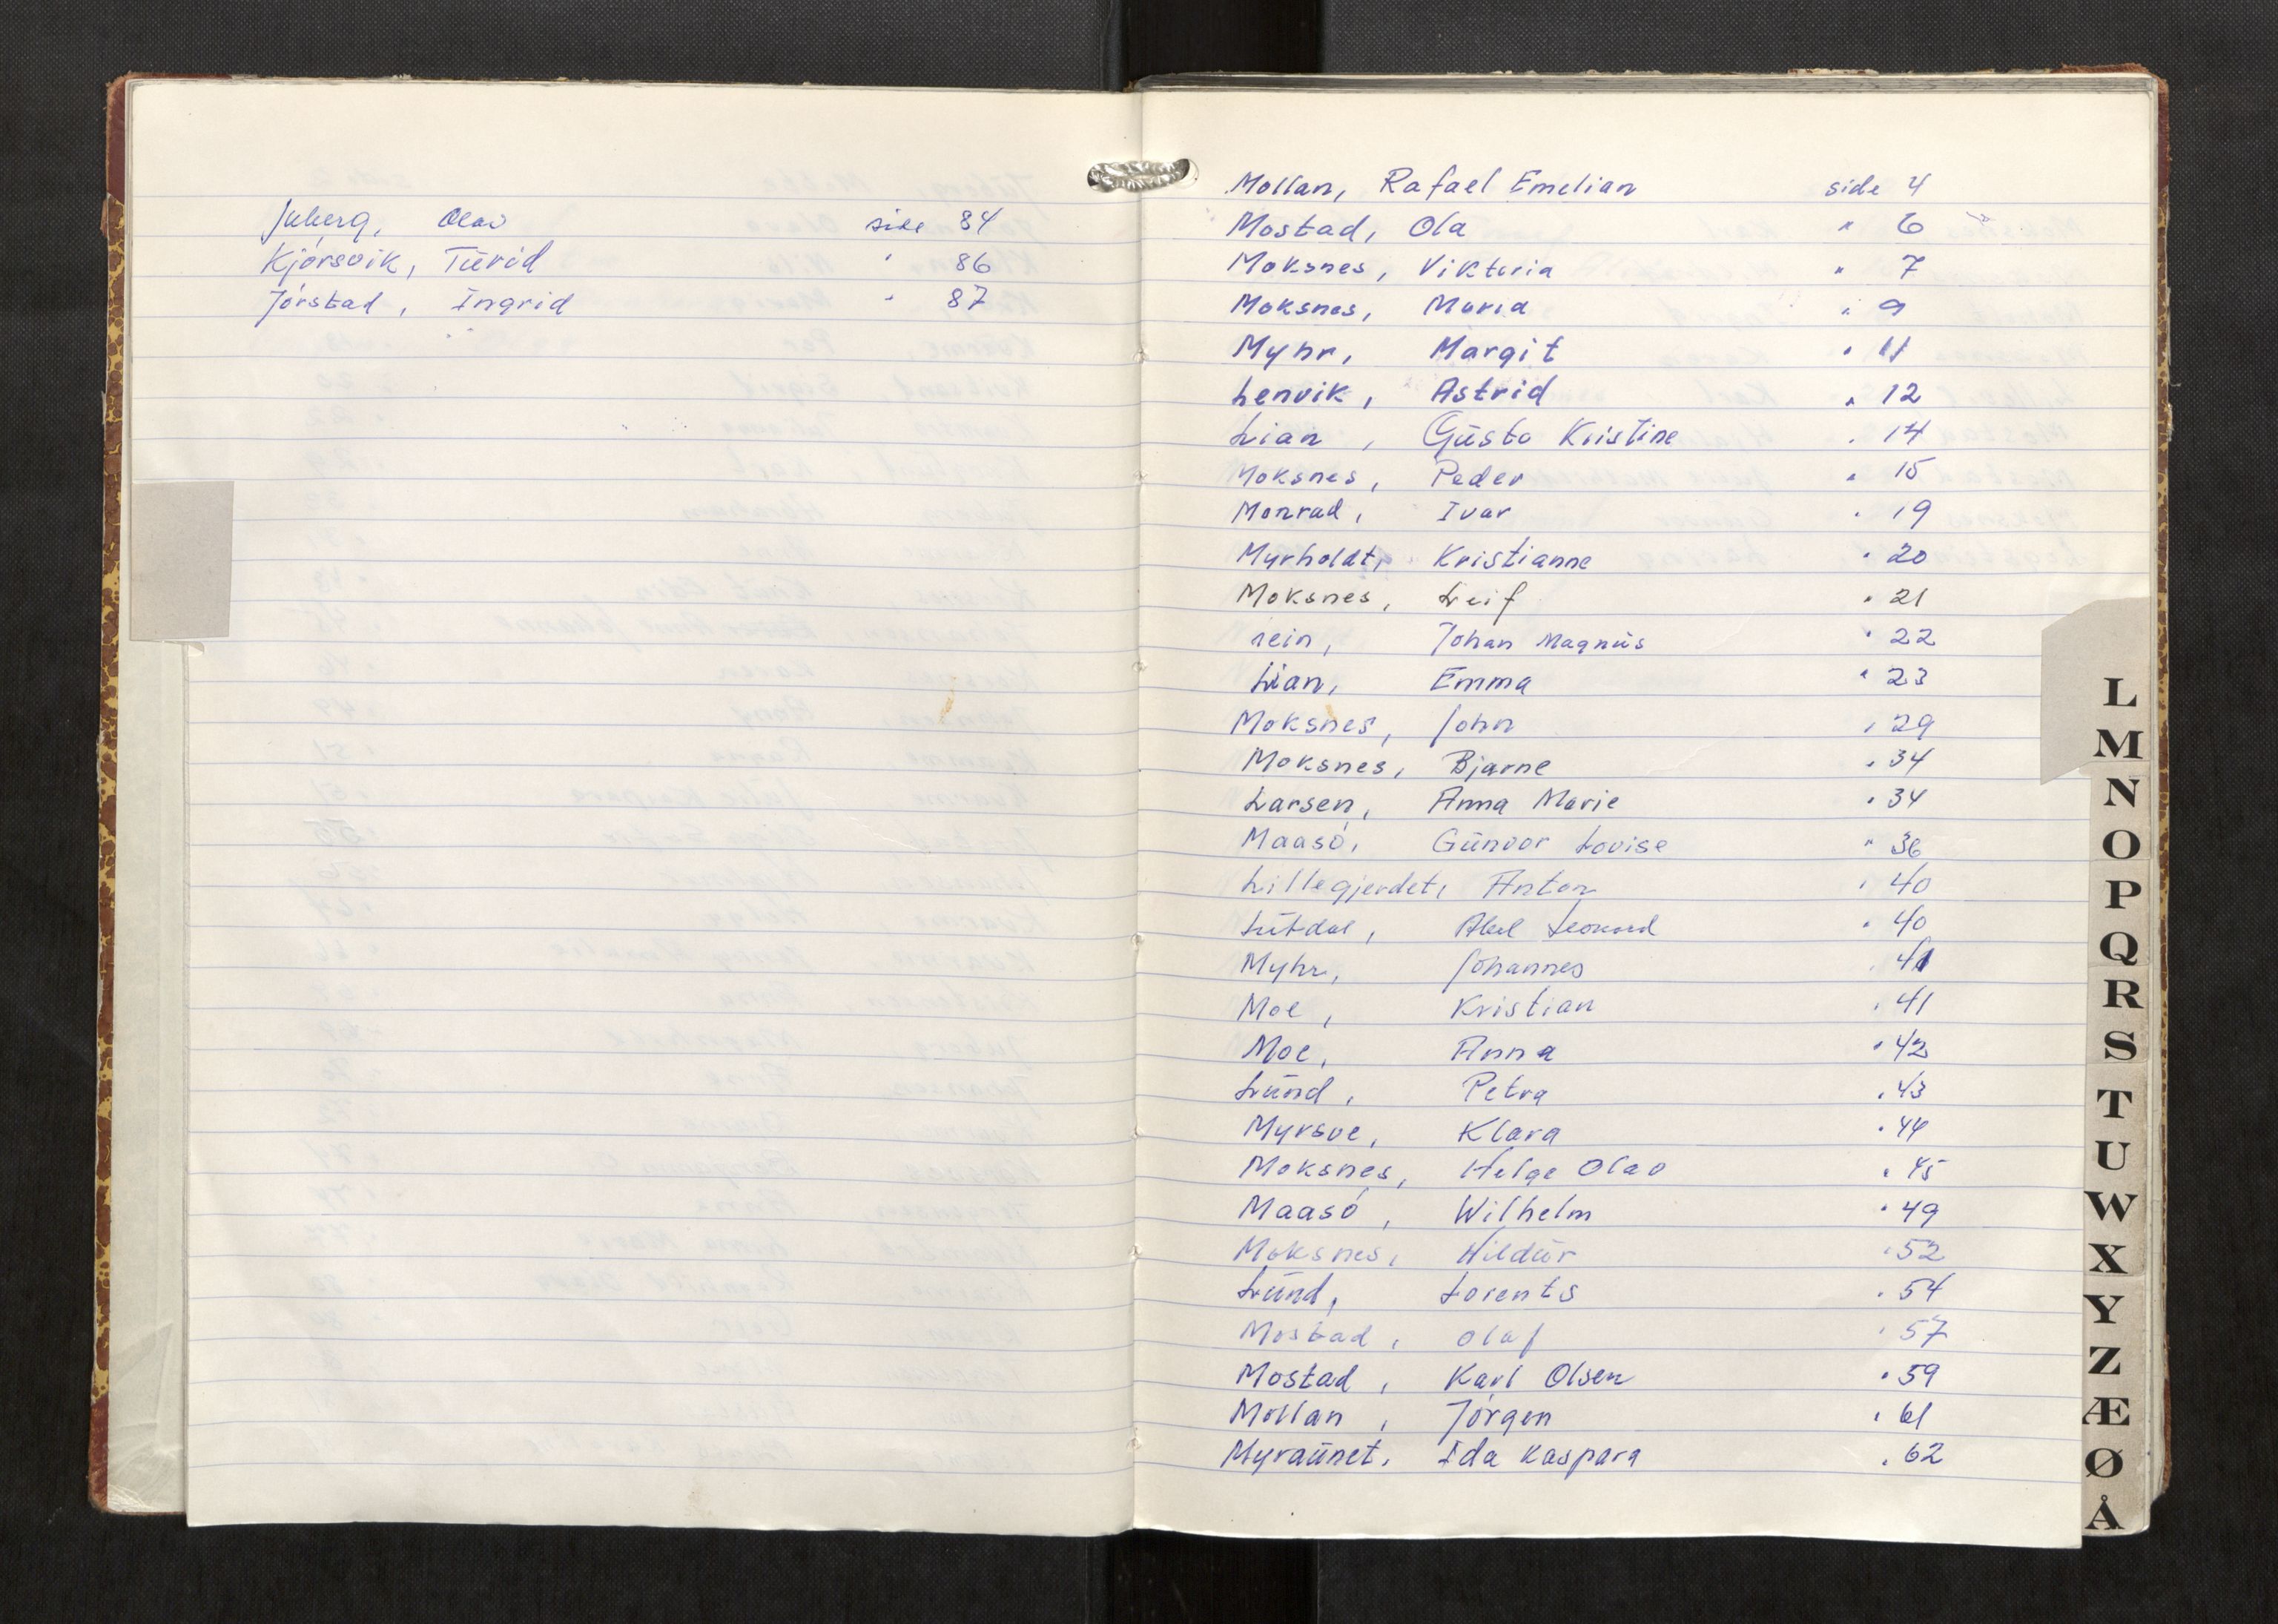 Juberg, Olav side 84
Kjörsvik, Tŭrid " 86
Jörstad, Ingrid " 87
Mollan, Rafael Emelian side 4
Mostad, Ola " 6
Moksnes, Viktoria " 7
Moksnes, Maria " 9
Myhr, Margit " 11
Lenvik, Astrid " 12
Lian, Gŭsta Kristine " 14
Moksnes, Peder " 15
Monrad, Ivar " 19
Myrholdt, Kristianne " 20
Moksnes, Leif " 21
rein, Johan Magnŭs " 22
Lian, Emma " 23
Moksnes, John " 29
Moksnes, Bjarne " 34
Larsen, Anna Marie " 34
Maasö, Gŭnvor Lovise " 36
Lillegjerdet, Anton " 40
Lŭtdal, Abel Leonard " 40
Myhr, Johannes " 41
Moe, Kristian " 41
Moe, Anna " 42
Lŭnd, Petra " 43
Myrsve, Klara " 44
Moksnes, Helge Olav " 45
Maasö, Wilhelm " 49
Moksnes, Hildŭr " 52
Lŭnd, Lorents " 54
Mostad, Olaf " 57
Mostad, Karl Olsen " 59
Mollan, Jörgen " 61
Myraŭnet, Ida Kaspara " 62
L
M
N
O
P
Q
R
S
T
U
W
X
Y
Z
Æ
Ø
Å